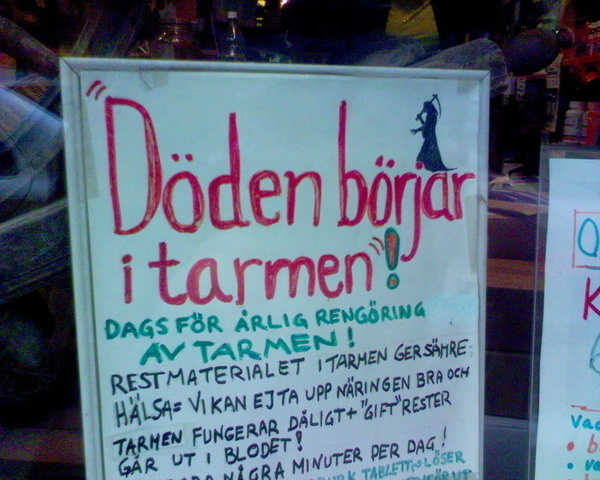 "Döden börjar
i tarmen"!
DAGS FÖR ÅRLIG RENGÖRING
AV TARMEN!
RESTMATERIALET I TARMEN GER SÄMRE
HÄLSA = VI KAN EJ TA UPP NÄRINGEN BRA OCH
TARMEN FUNGERAR DÅLIGT + "GIFT" RESTER
GÅR UT I BLODET!
NÅGRA MINUTER PER DAG!
TABLETT LÖSER
K
Vad